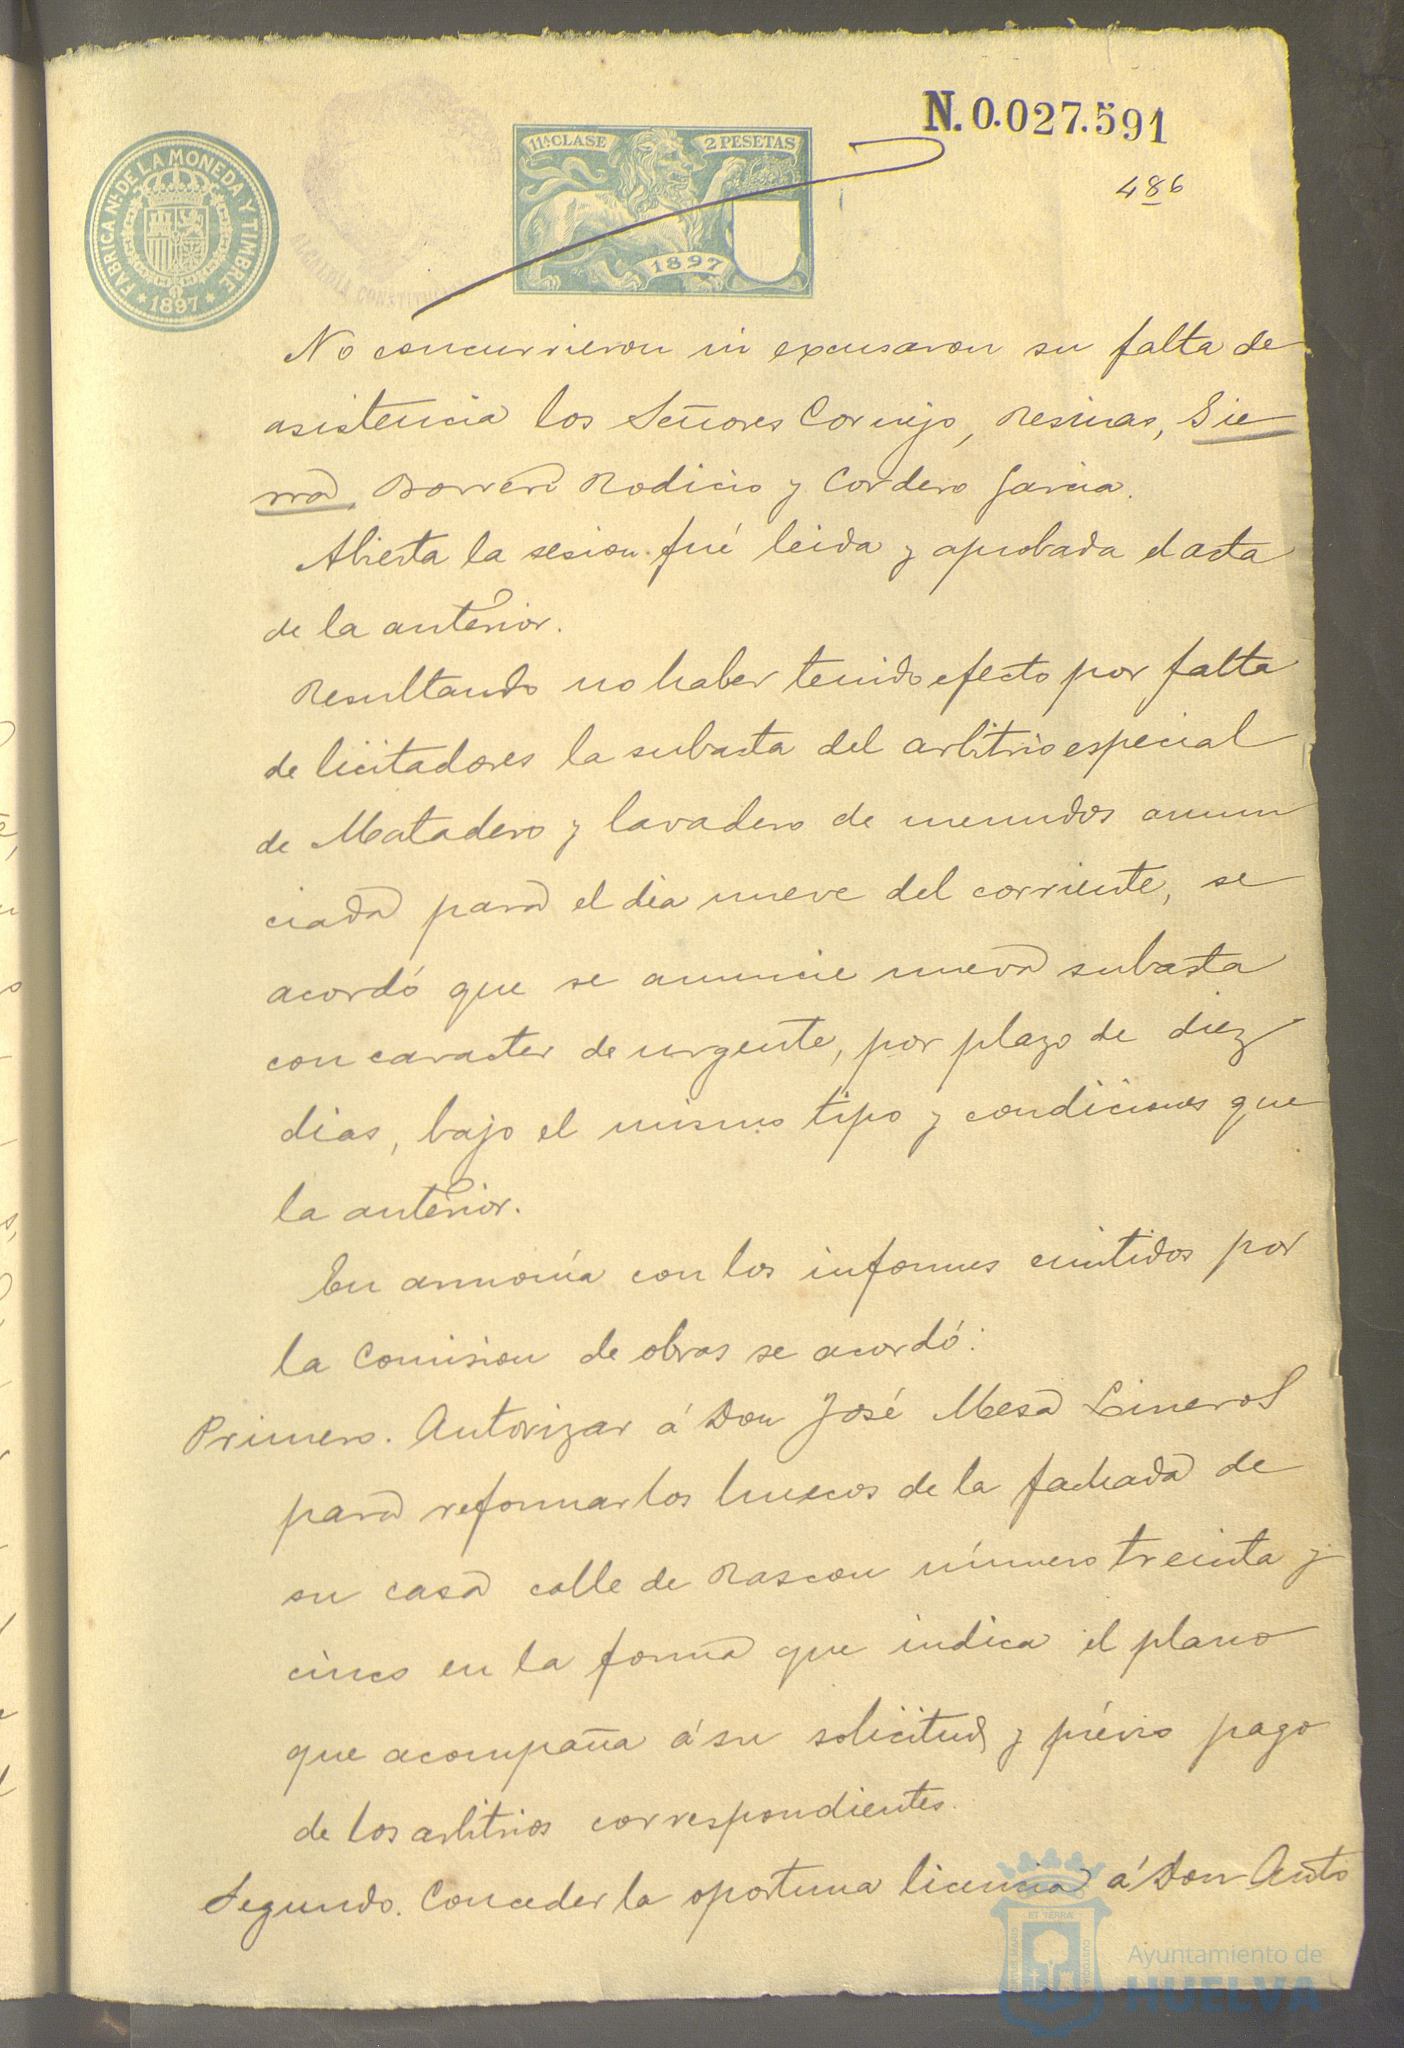 N. 0.027.591
486
11ª CLASE
2 PESETAS
1897
FABRICA Nal DE LA MONEDA Y TIMBRE
* 1897 *
ALCALDIA CONSTITU
No concurrieron ni excusaron su falta de
asistencia los Señores Cornejo, Resinas, Sie
rra, Borrero Rodicio y Cordero Garcia.
Abierta la sesion fué leida y aprobada el acta
de la anterior.
Resultando no haber tenido efecto por falta
de licitadores la subasta del arbitrio especial
de Matadero y lavadero de menudos anun
ciada para el dia nueve del corriente, se
acordó que se anuncie nueva subasta
con caracter de urgente, por plazo de diez
dias, bajo el mismo tipo y condiciones que
la anterior.
En armonía con los informes emitidos por
la Comision de obras se acordó:
Primero. Autorizar á Don José Mesa Lineros
para reformar los huecos de la fachada de
su casa calle de Rascon número treinta y
cinco en la forma que indica el plano
que acompaña á su solicitud y prévio pago
de los arbitrios correspondientes.
Segundo. Conceder la oportuna licencia á Don Anto
Ayuntamiento de
HUELVA